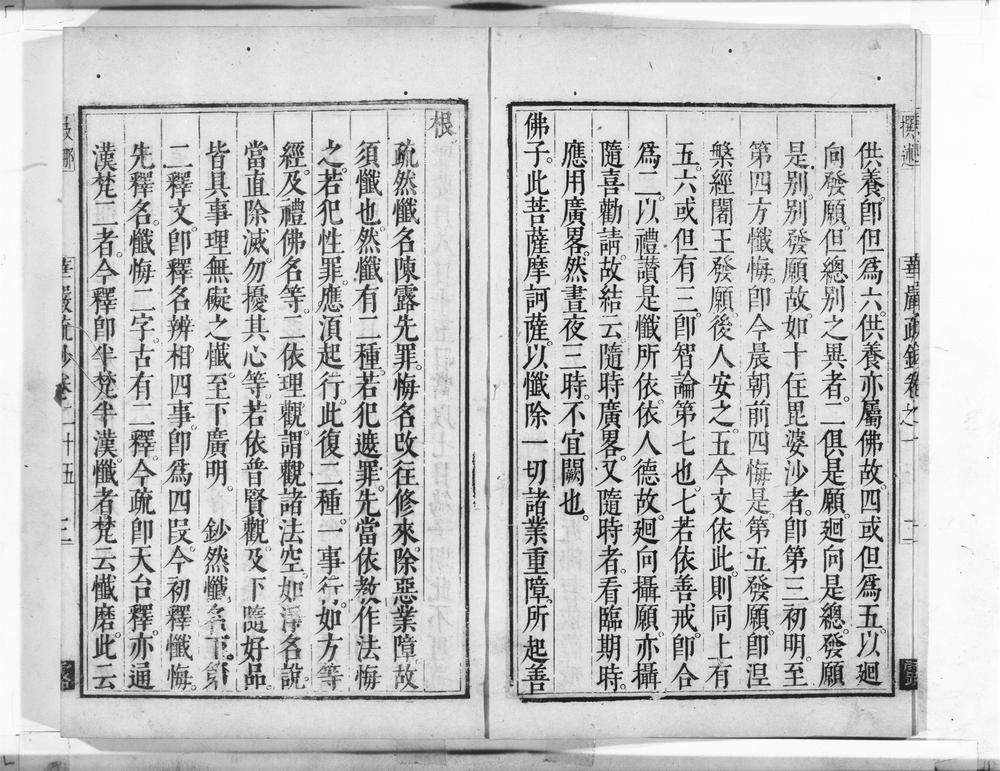 供養。卽但爲六。供養亦屬佛故。四或但爲五。以廻
向發願。但總別之異者。二俱是願。廻向是總。發願
是別。別發願故。如十住毘婆沙者。卽第三初明。至
第四方懺悔。卽今晨朝前四悔。是第五發願。卽涅
槃經闍王發願。後人安之。五今文依此。則同上有
五。六或但有三。卽智論第七也。七若依善戒。卽合
爲二。以禮讚是懺所依。依人德故。廻向攝願。亦攝
隨喜勸請。故結云。隨時廣畧。又隨時者。看臨期時。
應用廣畧。然晝夜三時。不宜闕也。
佛子。此菩薩摩訶薩。以懺除一切諸業重障。所起善
根
疏然懺名陳露先罪。悔名改往修來。除惡業障故
須懺也。然懺有二種。若犯遮罪。先當依教作法悔
之。若犯性罪。應須起行。此復二種。一事行。如方等
經。及禮佛名等。二依理觀。謂觀諸法空。如淨名說。
當直除滅。勿擾其心等。若依普賢觀。及下隨好品。
皆具事理無礙之懺。至下廣明。 鈔然懺名下。第
二釋文。卽釋名辨相四事。卽爲四段。今初釋懺悔。
先釋名。懺悔二字。古有二釋。今疏卽天台釋。亦通
漢梵二者。今釋卽半梵半漢。懺者。梵云懺磨。此云
華嚴疏鈔卷二十五